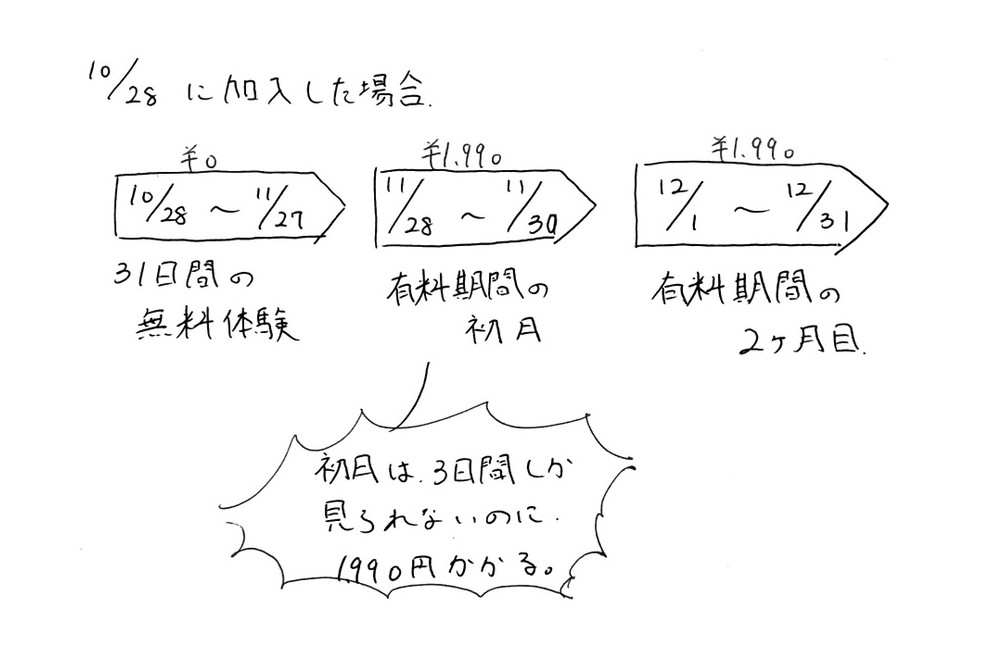 10/28 に加入した場合.
¥0
¥1.990
¥1.990
10/28 〜 11/27
11/28 〜 11/30
12/1 〜 12/31
31日間の
無料体験
有料期間の
初月
有料期間の
2ヶ月目.
初月は.3日間しか
見られないのに.
1990円かかる。